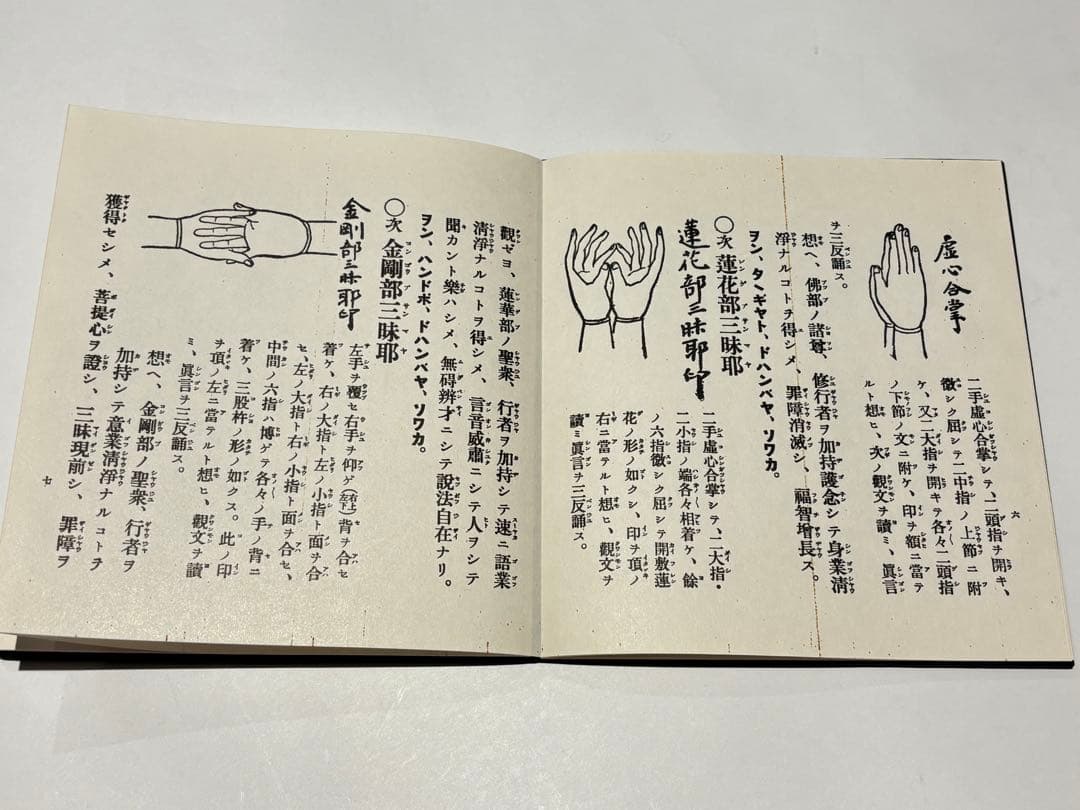 六
虚心合掌
二手虛心合掌シテ、二頭指ヲ開キ、
微シク屈シテ二中指ノ上節ニ附
ケ、又二大指ヲ開キテ各々二頭指
ノ下節ノ文ニ附ケ、印ヲ額ニ當テ
ルト想ヒ、次ノ觀文ヲ讀ミ、眞言
ヲ三反誦ス。
想ヘ、佛部ノ諸尊、修行者ヲ加持護念シテ身業淸
淨ナルコトヲ得シメ、罪障消滅シ、福智增長ス。
ヲン、タヽギャト、ドハンバヤ、ソワカ。
〇次 蓮花部三昧耶
蓮花部三昧耶印
二手虛心合掌シテ、二大指・
二小指ノ端各々相着ケ、餘
ノ六指微シク屈シテ開敷蓮
花ノ形ノ如クシ、印ヲ頂ノ
右ニ當テルト想ヒ、觀文ヲ
讀ミ眞言ヲ三反誦ス。
觀ゼヨ、蓮華部ノ聖衆、行者ヲ加持シテ速ニ語業
淸淨ナルコトヲ得シメ、言音威肅ニシテ人ヲシテ
聞カント樂ハシメ、無碍辨才ニシテ説法自在ナリ。
ヲン、ハンドボ、ドハンバヤ、ソワカ。
〇次 金剛部三昧耶
金剛部三昧耶印
左手ヲ覆セ右手ヲ仰ゲ(左上右下)背ヲ合セ
着ケ、右ノ大指ト左ノ小指ト面ヲ合
セ、左ノ大指ト右ノ小指ト面ヲ合セ、
中間ノ六指ハ博ゲテ各々手ノ背ニ
着ケ、三股杵ノ形ノ如クス。此ノ印
ヲ頂ノ左ニ當テルト想ヒ、觀文ヲ讀
ミ、眞言ヲ三反誦ス。
想ヘ、金剛部ノ聖衆、行者ヲ
加持シテ意業淸淨ナルコトヲ
獲得セシメ、菩提心ヲ證シ、三昧現前シ、罪障ヲ
七